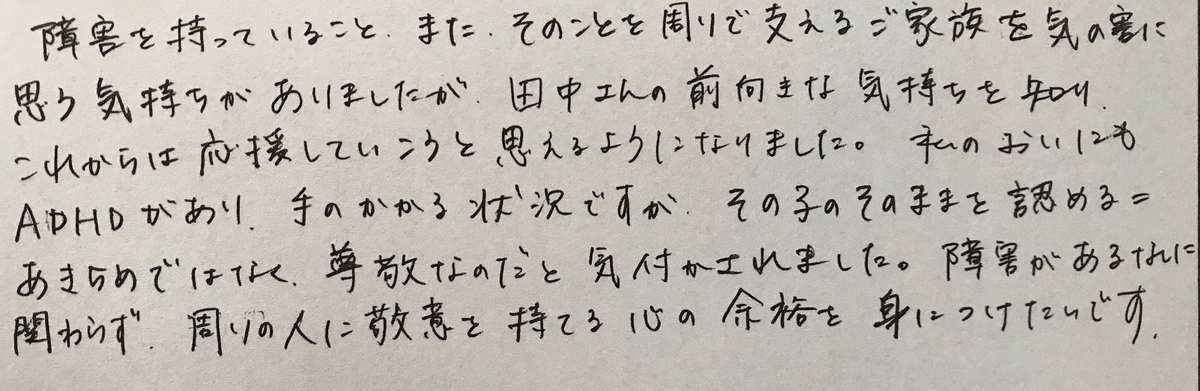 障害を持っていること、また、そのことを周りで支えるご家族を気の害に
思う気持ちがありましたが、田中さんの前向きな気持ちを知り、
これからは応援していこうと思えるようになりました。私のおいにも
ADHDがあり、手のかかる状況ですが、その子のそのままを認める=
あきらめではなく、尊敬なのだと気付かされました。障害があるなしに
関わらず、周りの人に敬意を持てる心の余裕を身につけたいです。